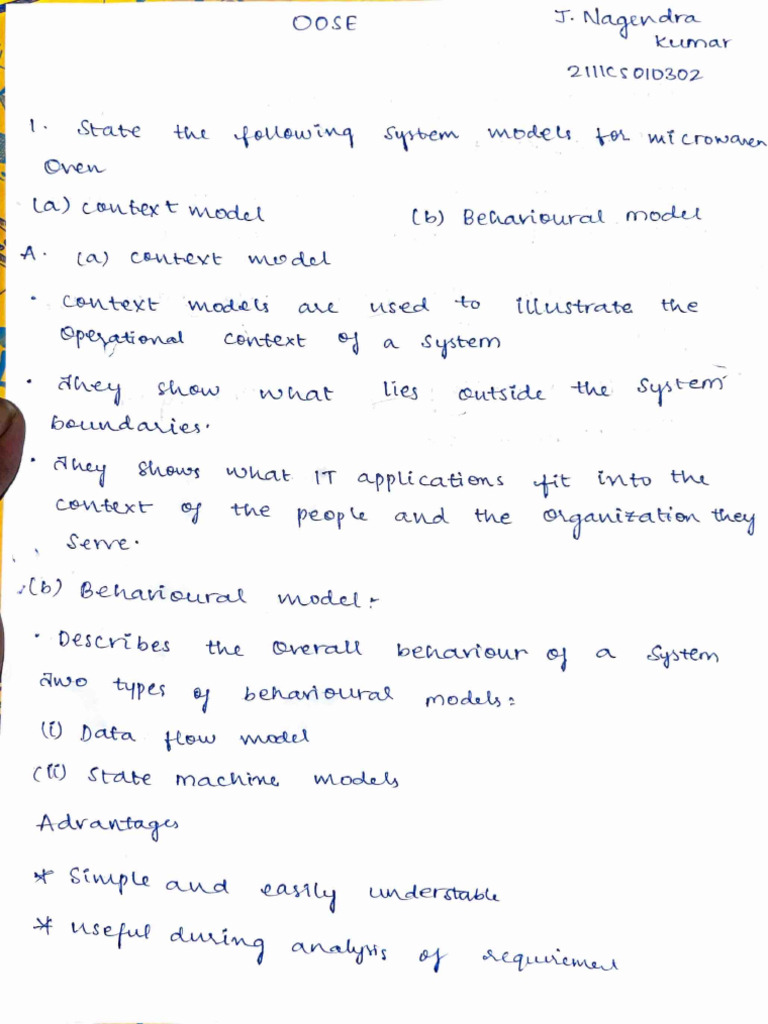 OOSE
J. Nagendra
Kumar
2111CS010302
1. State the following system models for microwaven
Oven
(a) context model (b) Behavioural model
A. (a) context model
• Context models are used to illustrate the
Operational context of a system
• They show what lies outside the system
boundaries.
• They shows what IT applications fit into the
context of the people and the organization they
serve.
(b) Behavioural model :-
• Describes the overall behaviour of a system
Two types of behavioural models:
(i) Data flow model
(ii) State machine models
Advantages
* Simple and easily understable
* useful during analysis of requiremen